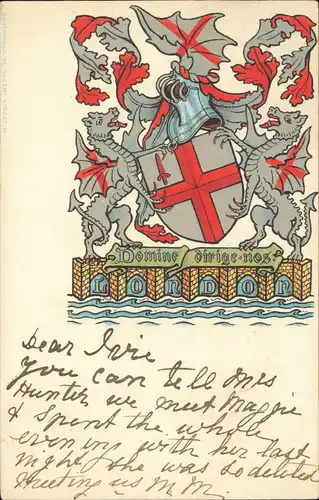 Domine dirige nos
LONDON
Dear Ivie
you can tell Mrs
Hunter we meet Maggie
& Spent the whole
evening with her last
night she was so delited
meeting us M M